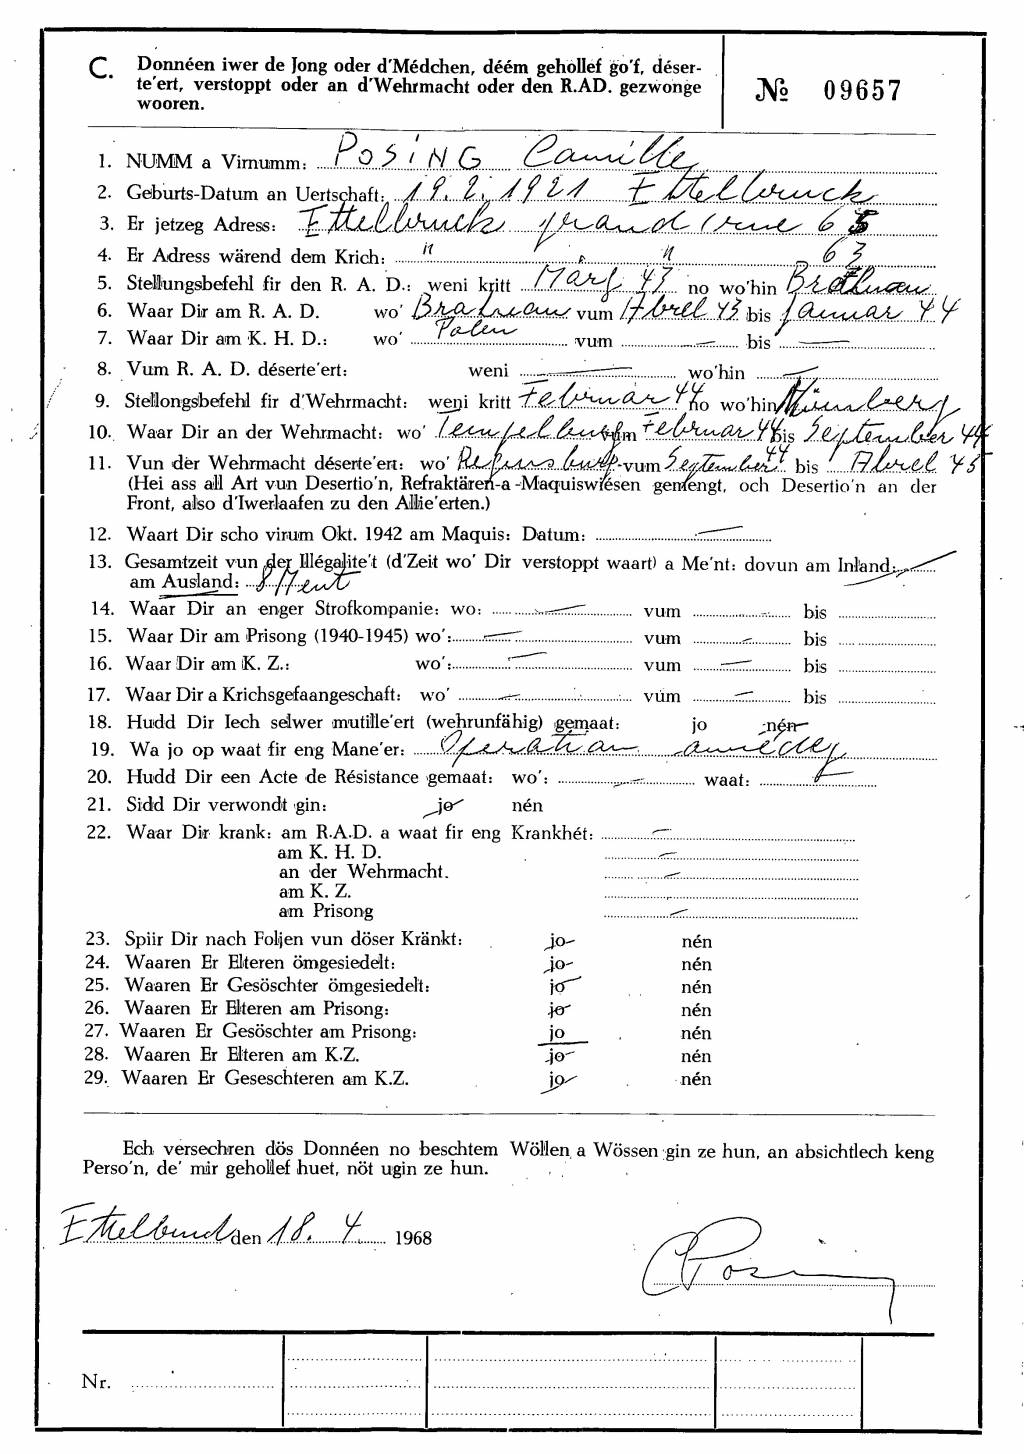 C. Donnéen iwer de Jong oder d'Médchen, déém gehollef go'f, déser-
te'ert, verstoppt oder an d'Wehrmacht oder den R.AD. gezwonge
wooren.
№ 09657
1. NUMM a Virnumm: POSING Camille
2. Geburts-Datum an Uertschaft: 19.2.1921 Ettelbruck
3. Er jetzeg Adress: Ettelbruck grand rue 65
4. Er Adress wärend dem Krich: " " 63
5. Stellungsbefehl fir den R. A. D.: weni kritt März 43 no wo'hin
6. Waar Dir am R. A. D. wo' vum Abrel 43 bis Januar 44
7. Waar Dir am K. H. D.: wo' Polen vum — bis —
8. Vum R. A. D. déserte'ert: weni — wo'hin —
9. Stellongsbefehl fir d'Wehrmacht: weni kritt Februar 44 no wo'hin Nürnberg
10. Waar Dir an der Wehrmacht: wo' Tempelburg vum Februar 44 bis September 44
11. Vun der Wehrmacht déserte'ert: wo' Regensburg vum September 44 bis Abrel 45
(Hei ass all Art vun Desertio'n, Refraktären-a-Maquiswiesen gemengt, och Desertio'n an der
Front, also d'Iwerlaafen zu den Allie'erten.)
12. Waart Dir scho virum Okt. 1942 am Maquis: Datum: —
13. Gesamtzeit vun der Illégalite't (d'Zeit wo' Dir verstoppt waart) a Me'nt: dovun am Inland: —
am Ausland: 8 Ment
14. Waar Dir an enger Strofkompanie: wo: — vum — bis
15. Waar Dir am Prisong (1940-1945) wo': — vum — bis
16. Waar Dir am K. Z.: wo': — vum — bis
17. Waar Dir a Krichsgefaangeschaft: wo' — vum — bis
18. Hudd Dir Iech selwer mutille'ert (wehrunfähig) gemaat: jo nén
19. Wa jo op waat fir eng Mane'er: Operatian
20. Hudd Dir een Acte de Résistance gemaat: wo': — waat: —
21. Sidd Dir verwondt gin: jo nén
22. Waar Dir krank: am R.A.D. a waat fir eng Krankhét: —
am K. H. D. —
an der Wehrmacht. —
am K. Z. —
am Prisong —
23. Spiir Dir nach Foljen vun döser Kränkt: jo nén
24. Waaren Er Elteren ömgesiedelt: jo nén
25. Waaren Er Gesöschter ömgesiedelt: jo nén
26. Waaren Er Elteren am Prisong: jo nén
27. Waaren Er Gesöschter am Prisong: jo nén
28. Waaren Er Elteren am K.Z. jo nén
29. Waaren Er Geseschteren am K.Z. jo nén
Ech versechren dös Donnéen no beschtem Wöllen a Wössen gin ze hun, an absichtlech keng
Perso'n, de' mir gehollef huet, nöt ugin ze hun.
Ettelbruck den 18. 4. 1968
CPosing
Nr.